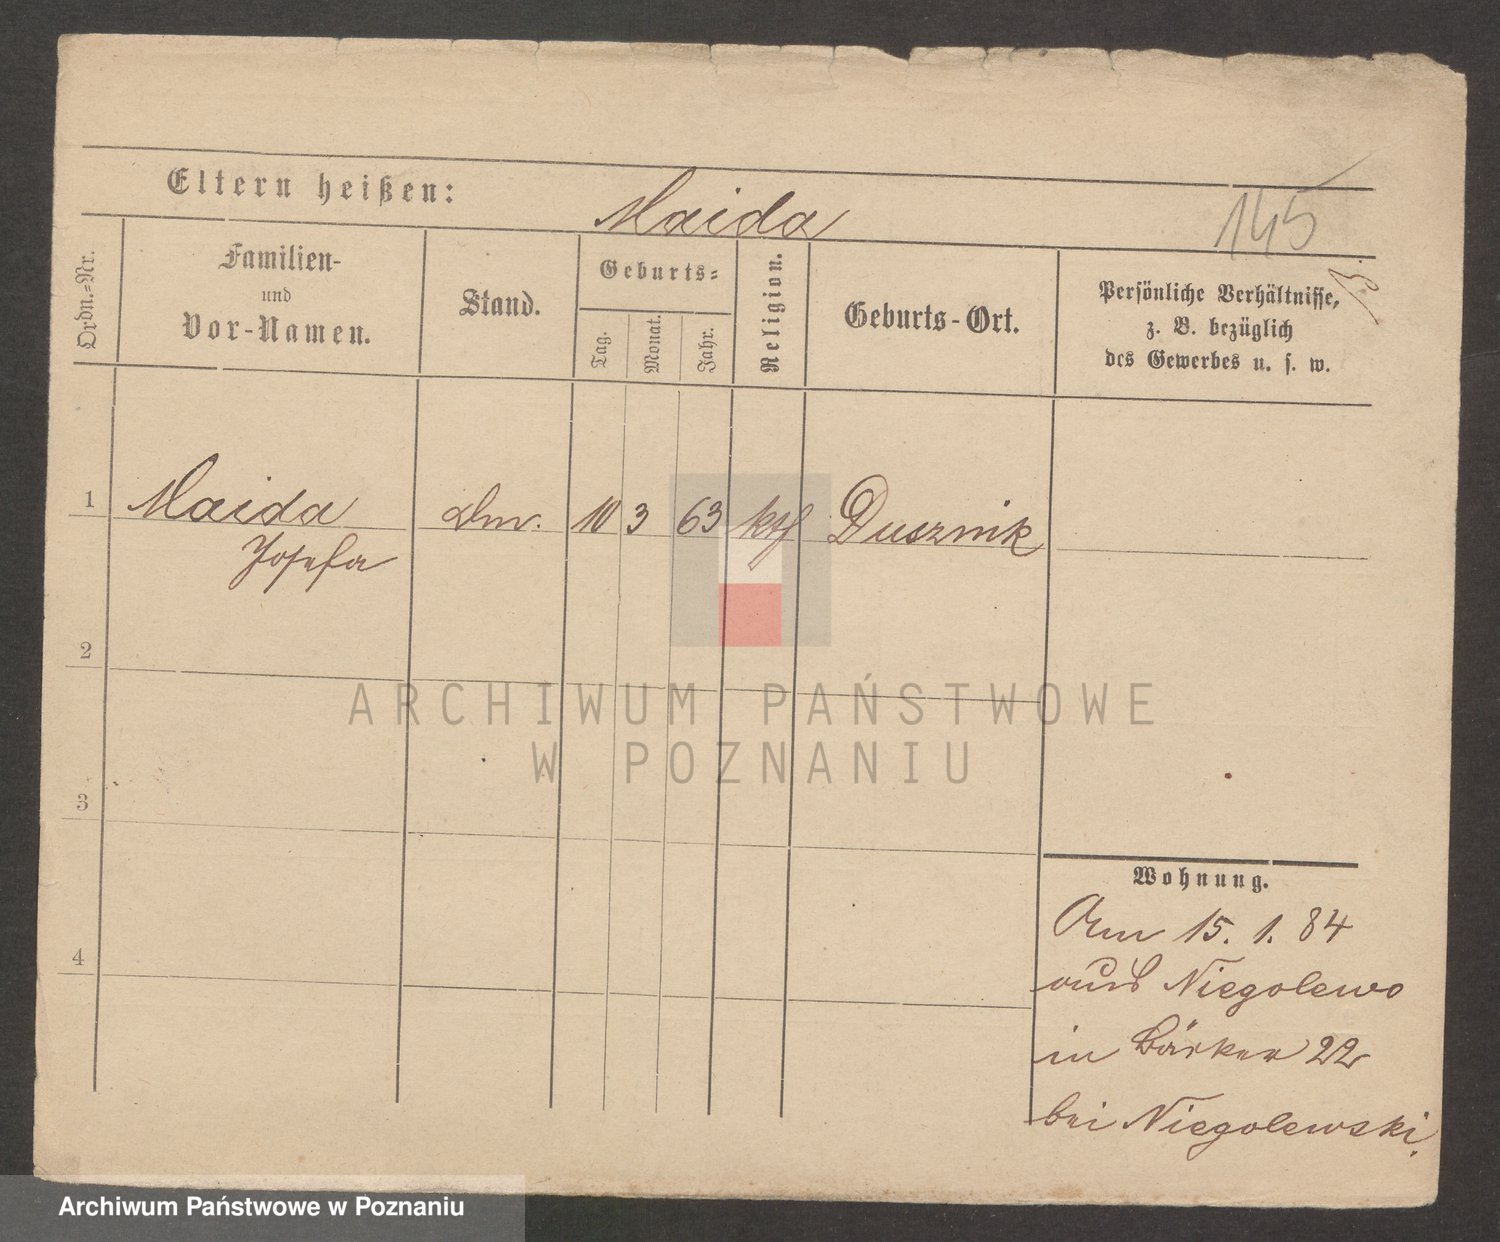 Eltern heißen:
Maida
145
Ordn.=Nr.
Familien-
und
Vor-Namen.
Stand.
Geburts=
Tag.
Monat.
Jahr.
Religion.
Geburts-Ort.
Persönliche Verhältnisse,
z. B. bezüglich
des Gewerbes u. s. w.
1
Maida
Josefa
10 3 63 kth Dusznik
2
ARCHIWUM PAŃSTWOWE
W POZNANIU
3
Wohnung.
4
15. 1. 84
aus Niegolewo
in Bäcker 22
bei Niegolewski.
Archiwum Państwowe w Poznaniu